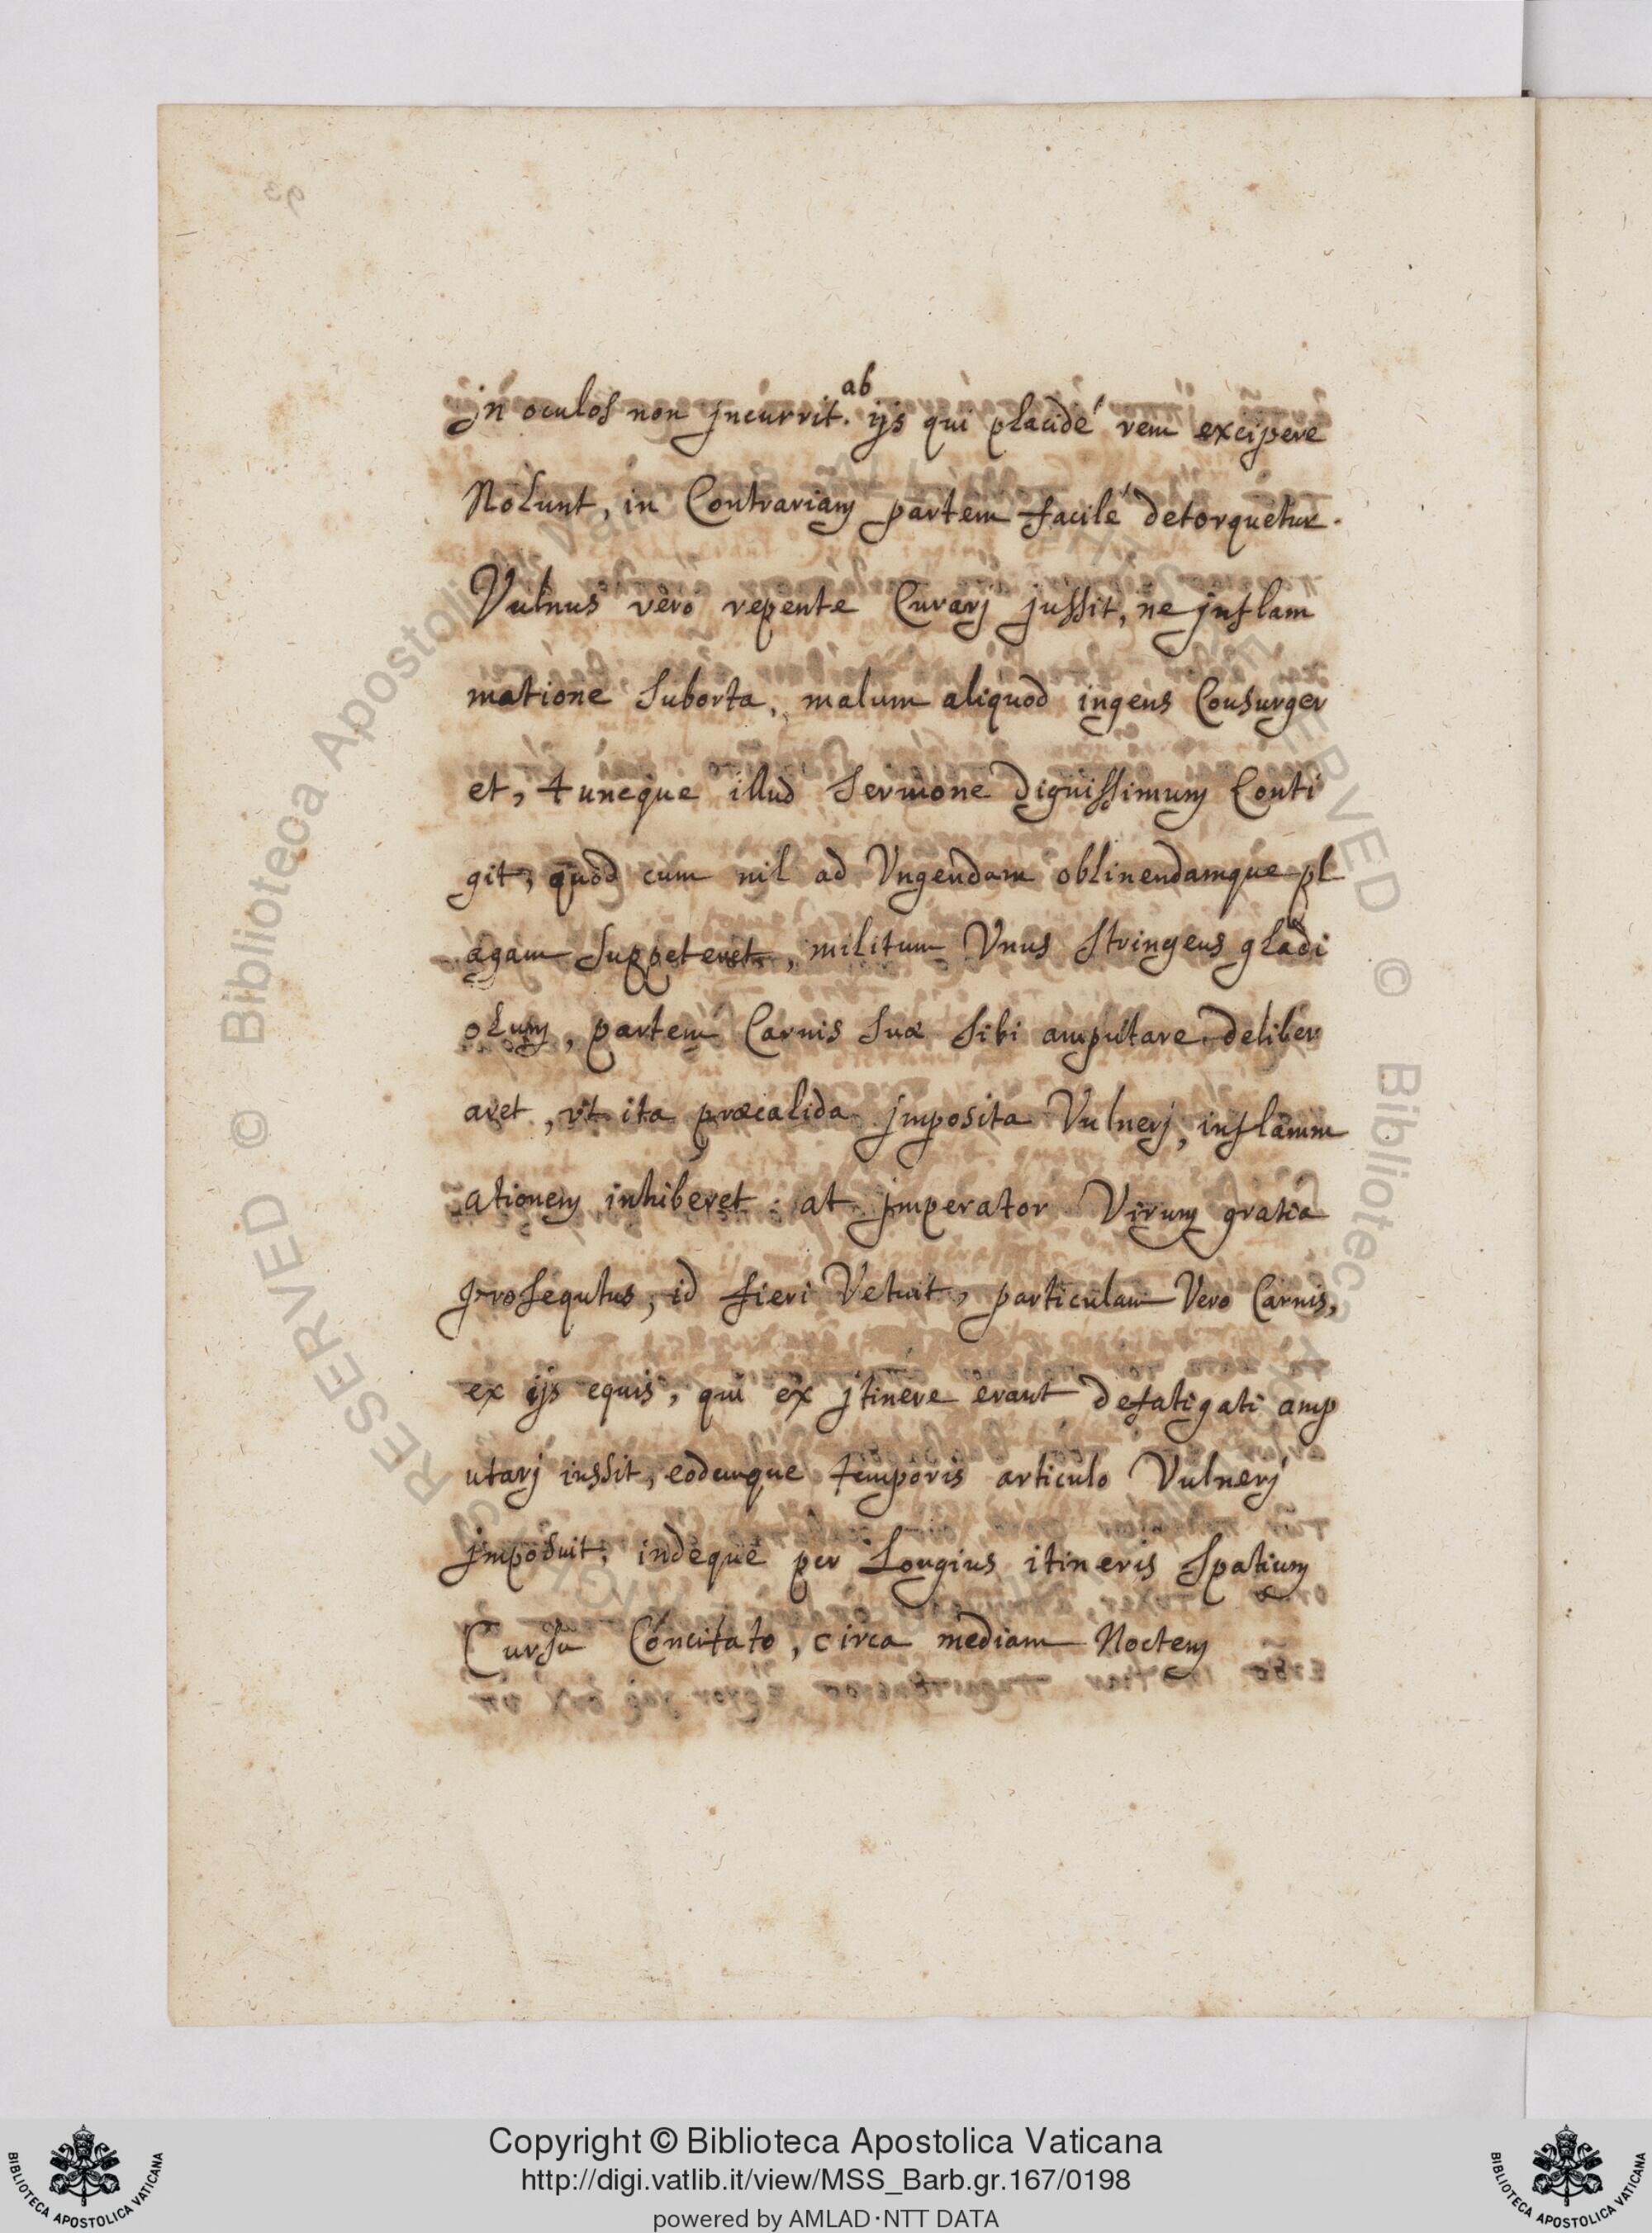 jn oculos non jncurrit. ab ijs qui placidé rem excipere
Nolunt, in Contrariam partem facilé detorquetur.
Vulnus veró repente Curarj jussit, ne jnflam
matione suborta, malum aliquod ingens Consurger
et, tuncque illud sermone dignissimum Conti
git, quod cum nil ad Vngendam oblinendamque pl
agam suppeteret, militum Vnus stringens gladi
olum, partem Carnis suæ sibi amputare deliber
aret, vt ita præcalida jmposita Vulnerj, inflamm
ationem inhiberet. at jmperator Virum gratia
prosequtus, id fieri Vetuit, particulam Vero Carnis,
ex ijs equis, qui ex jtinere erant defatigati amp
utarj iussit, eodemque temporis articulo Vulnerj
jmposuit, indeque per Longius itineris spatium
Cursu Concitato, circa mediam Noctem
RESERVED © Biblioteca Apostolica Vaticana
Copyright © Biblioteca Apostolica Vaticana
http://digi.vatlib.it/view/MSS_Barb.gr.167/0198
powered by AMLAD·NTT DATA
BIBLIOTECA APOSTOLICA VATICANA
BIBLIOTECA APOSTOLICA VATICANA